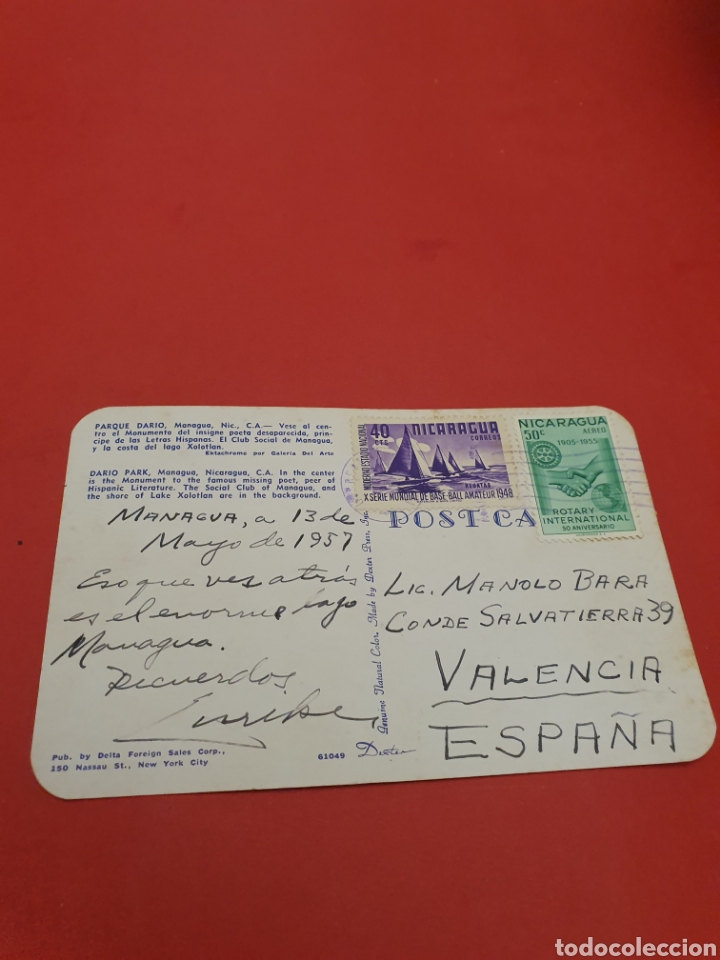 PARQUE DARIO, Managua, Nic., C.A.— Vese al cen-
tro el Monumento del insigne poeta desaparecido, prin-
cipe de las Letras Hispanas. El Club Social de Managua,
y la costa del lago Xolotlan.
Ektachrome por Galeria Del Arte
DARIO PARK, Managua, Nicaragua, C.A. In the center
is the Monument to the famous missing poet, peer of
Hispanic Literature. The Social Club of Managua, and
the shore of Lake Xolotlan are in the background.
MANAGUA, a 13 de
Mayo de 1957
Eso que ves atrás
es el enorme lago
Managua.
Recuerdos
Pub. by Delta Foreign Sales Corp.,
150 Nassau St., New York City
61049
Dexter
Genuine Natural Color, Made by Dexter Press, Inc.
40
CTS
NICARAGUA
CORREOS
REGATAS
X SERIE MUNDIAL DE BASE-BALL AMATEUR 1948
NICARAGUA
50c
AEREO
1905-1955
ROTARY
INTERNATIONAL
50 ANIVERSARIO
POST CA
LIC. MANOLO BARA
CONDE SALVATIERRA 39
VALENCIA
ESPAÑA
todocoleccion